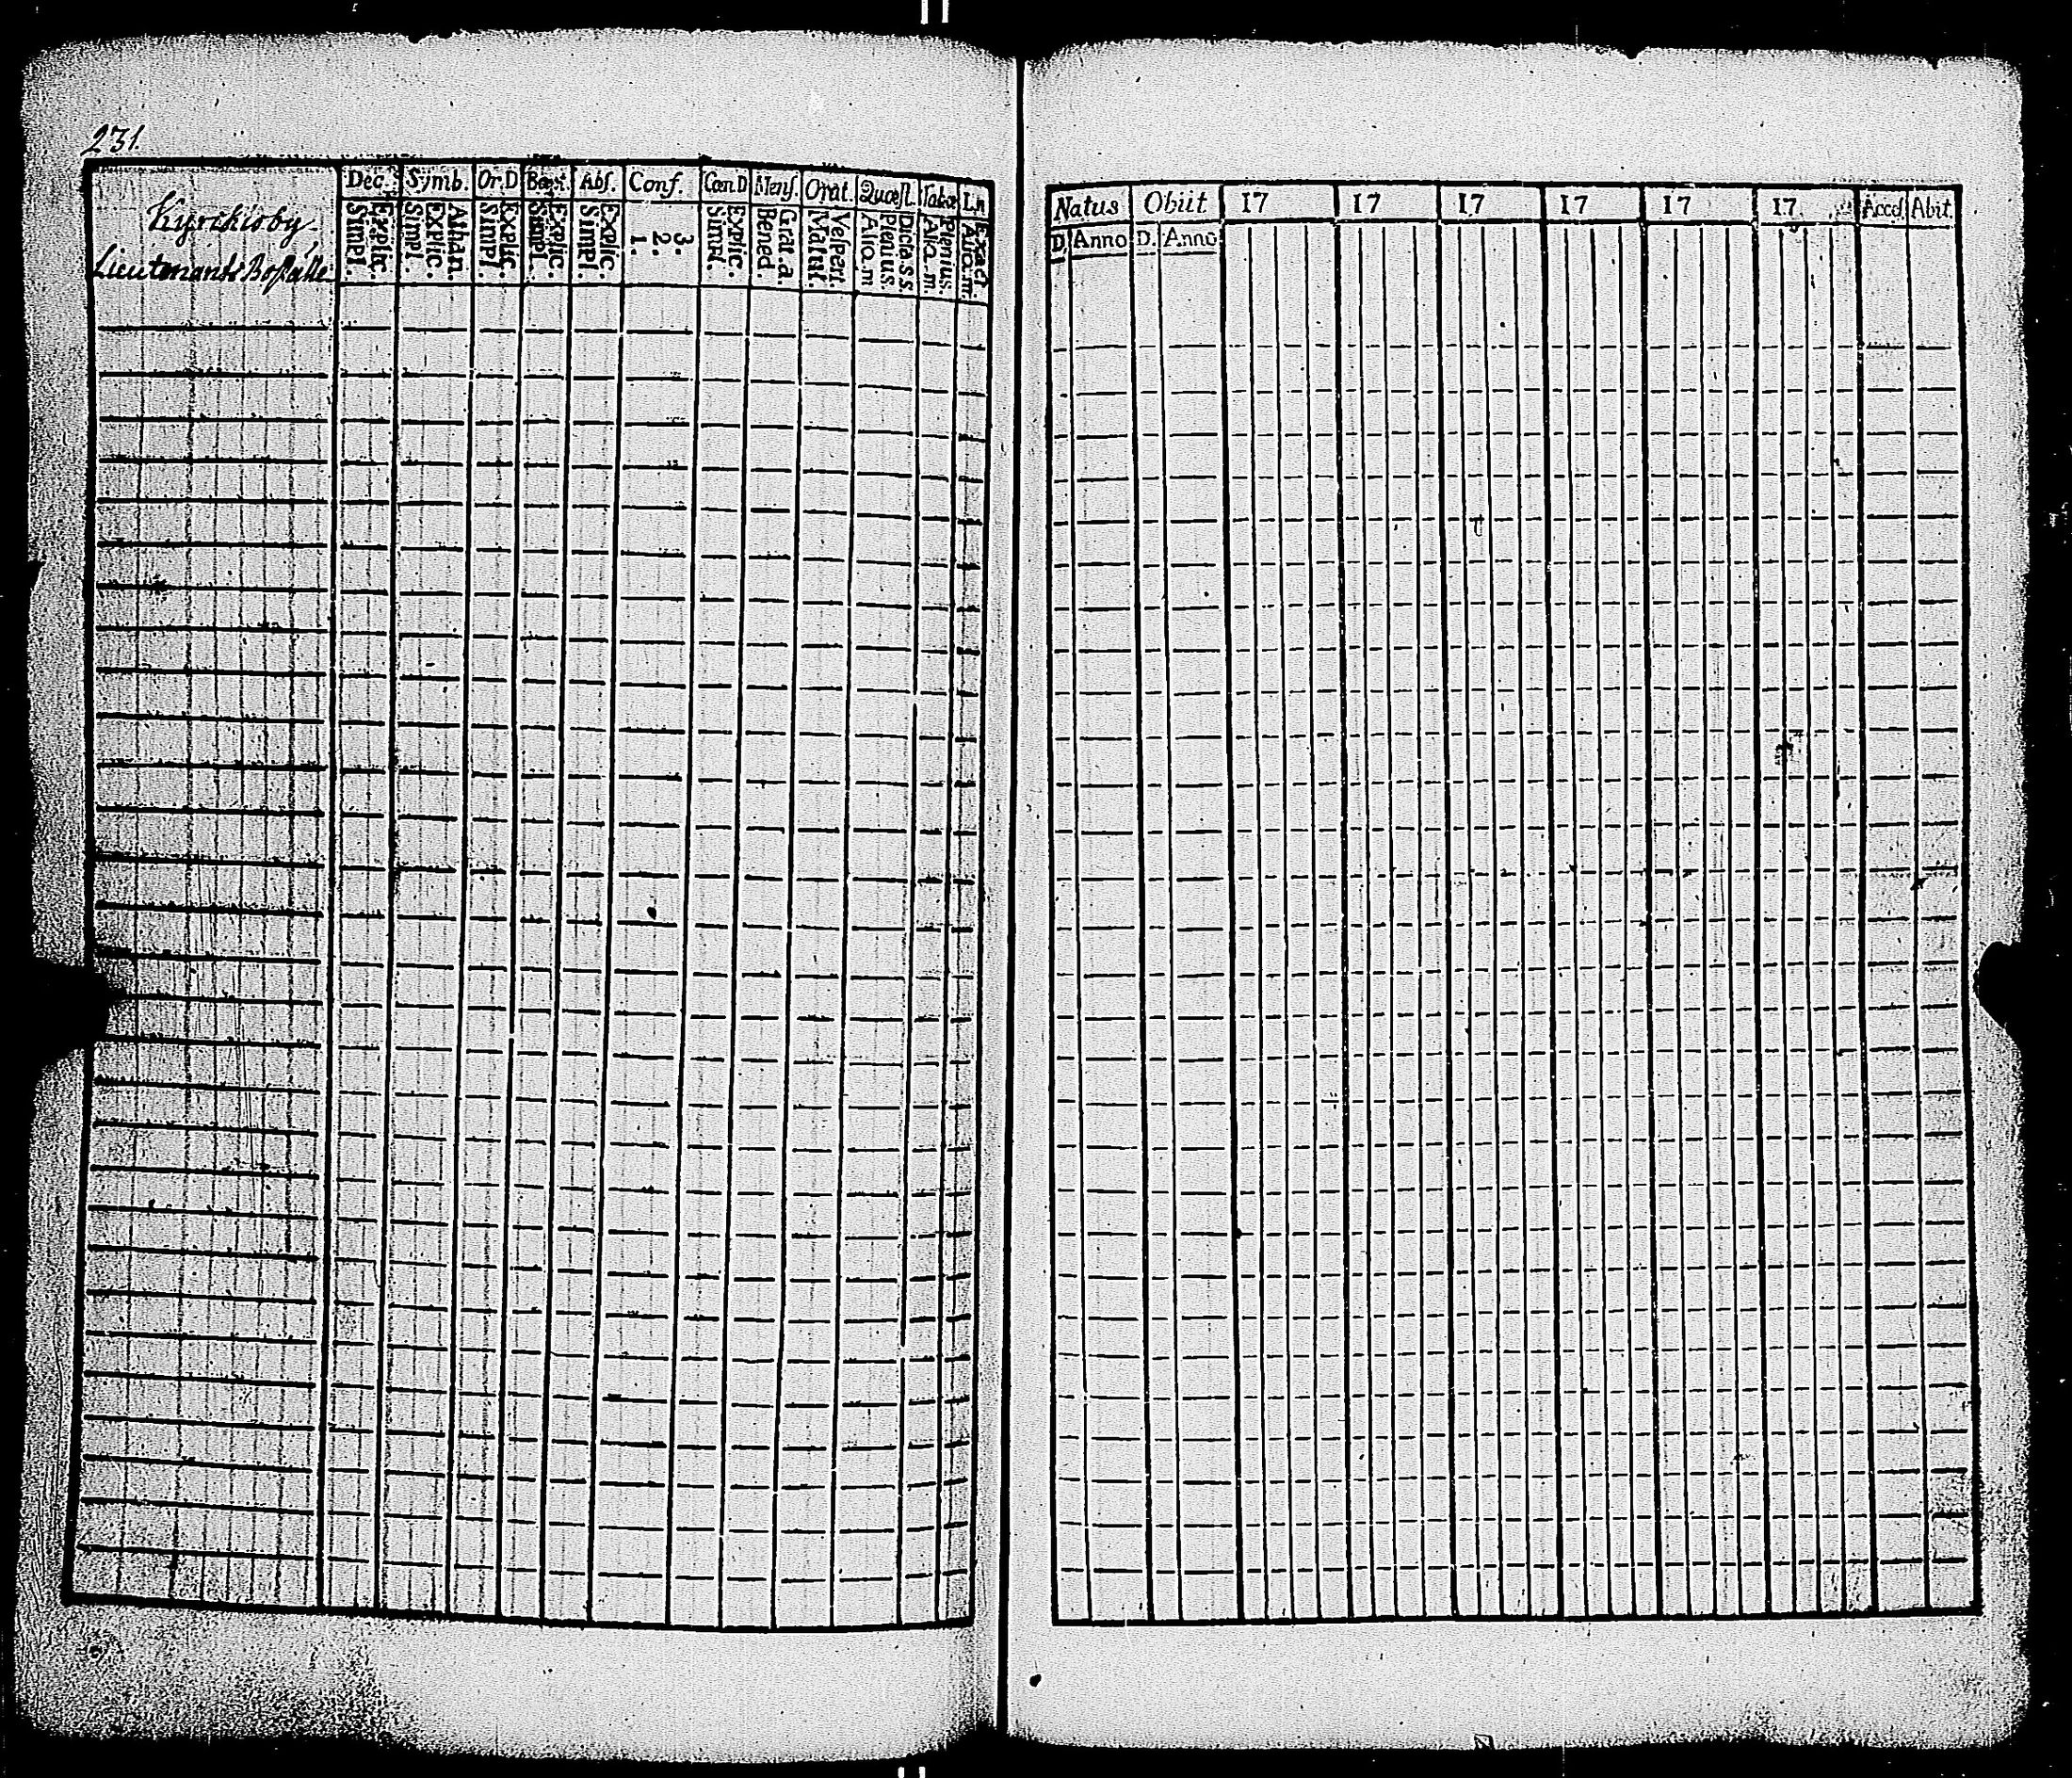 231.
Kyrckioby
Lieutenants Boställe
Dec. Symb. Or.D Bapt. Abs. Conf. Cœn.D Mens. Orat. Quæst. Tabœ L.n
Explic. Simpl.
Athan. Explic. Simpl.
Explic. Simpl.
Explic. Simpl.
Explic. Simpl.
3. 2. 1.
Explic. Simpl.
Grat. a. Bened
Vespert. Matut.
Dicta s.s Plenius. Alio.m
Plenius. Alia.m
Exact. Alio.m.
Natus Obiit 17 17 17 17 17 17 Acces. Abit.
D. Anno D. Anno